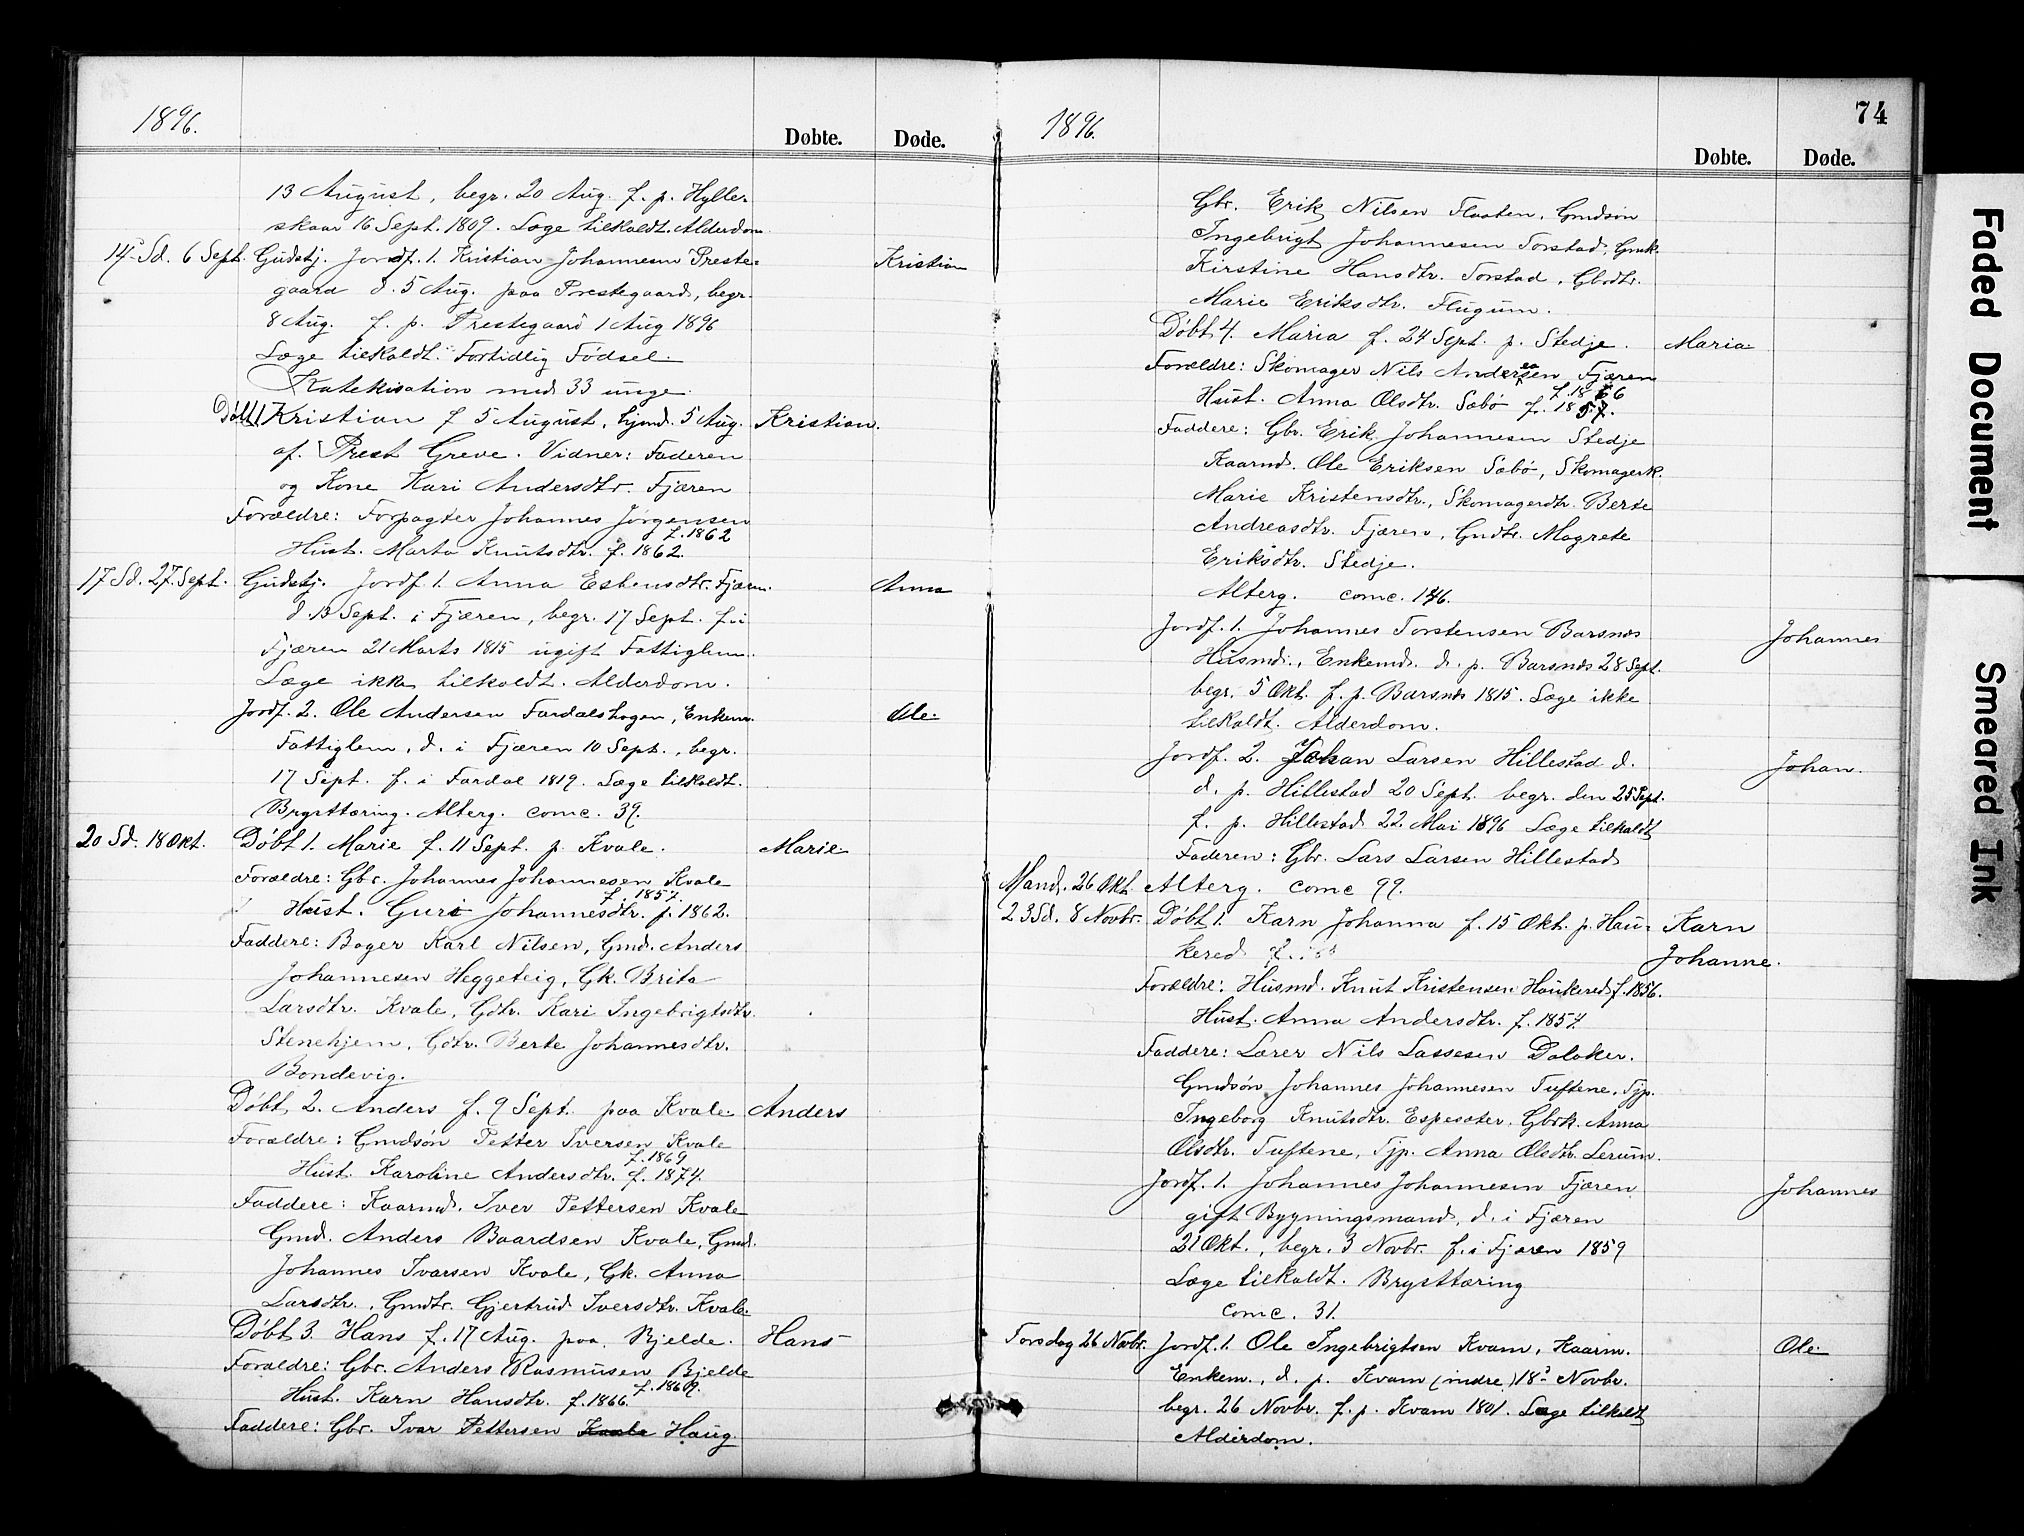 1896.
Døbte.
Døde.
13 August, begr. 20 Aug. f. p. Hyller-
skaar 16 Sept. 1809. Læge tilkaldt. Alderdom.
14 Sd. 6 Sept. Gudstj. Jordf. 1. Kristian Johannesen Preste-
Kristian
gaard d. 5 Aug. paa Prestegaard, begr.
8 Aug. f. p. Prestegaard 1 Aug 1896
Læge tilkaldt. Fortidlig Fødsel.
Katekisation med 33 unge.
Døbt 1 Kristian f 5 August, hjmd. 5 Aug.
Kristian.
af. Prest Greve. Vidner: Faderen
og Kone Kari Andersdtr. Fjæren
Forældre: Forpagter Johannes Jørgensen
f. 1862
Hust. Marta Knutsdtr. f. 1862.
17 Sd. 27. Sept. Gudstj. Jordf. 1. Anna Esbensdtr. Fjæren.
Anna
d. 13 Sept. i Fjæren, begr. 17 Sept. f. i
Fjæren 21 Marts 1815 ugift Fattiglem.
Læge ikke tilkaldt. Alderdom.
Jordf. 2. Ole Andersen Fardalshagen, Enkem.
Ole.
Fattiglem, d. i Fjæren 10 Sept., begr.
17 Sept. f. i Fardal 1819. Læge tilkaldt.
Brysttæring. Alterg. comc. 39.
20 Sd. 18 Okt. Døbt 1. Marie f. 11 Sept. p. Kvale.
Marie
Forældre: Gbr. Johannes Johannesen Kvale
f. 1857.
Hust. Guri Johannesdtr. f. 1862.
Faddere: Bager Karl Nilsen, Gmd. Anders
Johannesen Heggeteig, Gk. Brita
Larsdtr. Kvale, Gdtr. Kari Ingebrigtsdtr.
Stenehjem, Gdtr. Berte Johannesdtr.
Bondevig.
Døbt, 2. Anders f. 9 Sept. paa Kvale.
Anders
Forældre: Gmdsøn Petter Iversen Kvale
f. 1869
Hust. Karoline Andersdtr. f. 1874.
Faddere: Kaarmd. Iver Pettersen Kvale
Gmd. Anders Baardsen Kvale, Gmd.
Johannes Ivarsen Kvale, Gk. Anna
Larsdtr., Gmdtr. Gjertrud Iversdtr. Kvale.
Døbt 3. Hans f. 17 Aug. paa Bjelde.
Hans
Forældre: Gbr. Anders Rasmusen Bjelde
f. 1869.
Hust. Karn Hansdtr. f. 1866.
Faddere: Gbr. Ivar Pettersen Kvale Haug.
1896.
74
Døbte.
Døde.
Gbr. Erik Nilsen Flaaten, Gmdsøn
Ingebrigt Johannesen Torstad, Gmk.
Kirstine Hansdtr. Torstad, Gbdtr.
Marie Eriksdtr. Flugum.
Døbt 4. Maria f. 24 Sept. p. Stedje.
Maria
Forældre: Skomager Nils Andersen Fjæren
f. 1866
Hust. Anna Olsdtr. Sæbø f. 1857.
Faddere: Gbr. Erik Johannesen Stedje
Kaarmd. Ole Eriksen Sæbø, Skomagerk.
Marie Kristensdtr., Skomagerdtr. Berte
Andreasdtr. Fjæren, Gmdtr. Magrete
Eriksdtr. Stedje.
Alterg. comc. 146.
Jordf. 1. Johannes Torstensen Barsnes
Johannes
Husmd., Enkemd. d. p. Barsnes 28 Sept.
begr. 5 Okt. f. p. Barsnes 1815. Læge ikke
tilkaldt. Alderdom.
Jordf. 2. Johan Larsen Hillestad d.
Johan.
d. p. Hillestad 20 Sept. begr. den 25 Sept.
f. p. Hillestad 22. Mai 1896 Læge tilkaldt
Faderen: Gbr. Lars Larsen Hillestad
Mand. 26 Okt. Alterg. comc 99.
23 Sd. 8 Novbr. Døbt 1. Karn Johanna f. 15 Okt. p. Hau-
Karn
kered
Johanne.
Forældre: Husmd. Knut Kristensen Haukered f. 1856.
Hust. Anna Andersdtr. f. 1857.
Faddere: Lærer Nils Lassesen Dalaker.
Gmdsøn Johannes Johannesen Tuftene, Tjp.
Ingeborg Knutsdtr. Espesæter, Gbrk. Anna
Olsdtr. Tuftene, Tjp. Anna Olsdtr. Lerum.
Jordf. 1. Johannes Johannesen Fjæren
Johannes
gift Bygningsmand, d. i Fjæren
21 Okt., begr. 3 Novbr. f. i Fjæren 1859
Læge tilkaldt. Brysttæring
comc. 31.
Torsdag 26 Novbr. Jordf. 1. Ole Ingebrigtsen Kvam, Kaarm.
Ole
Enkem., d. p. Kvam (indre) 18 Novbr.
begr. 26 Novbr. f. p. Kvam 1801. Læge tilkaldt
Alderdom.
Faded Document
Smeared Ink